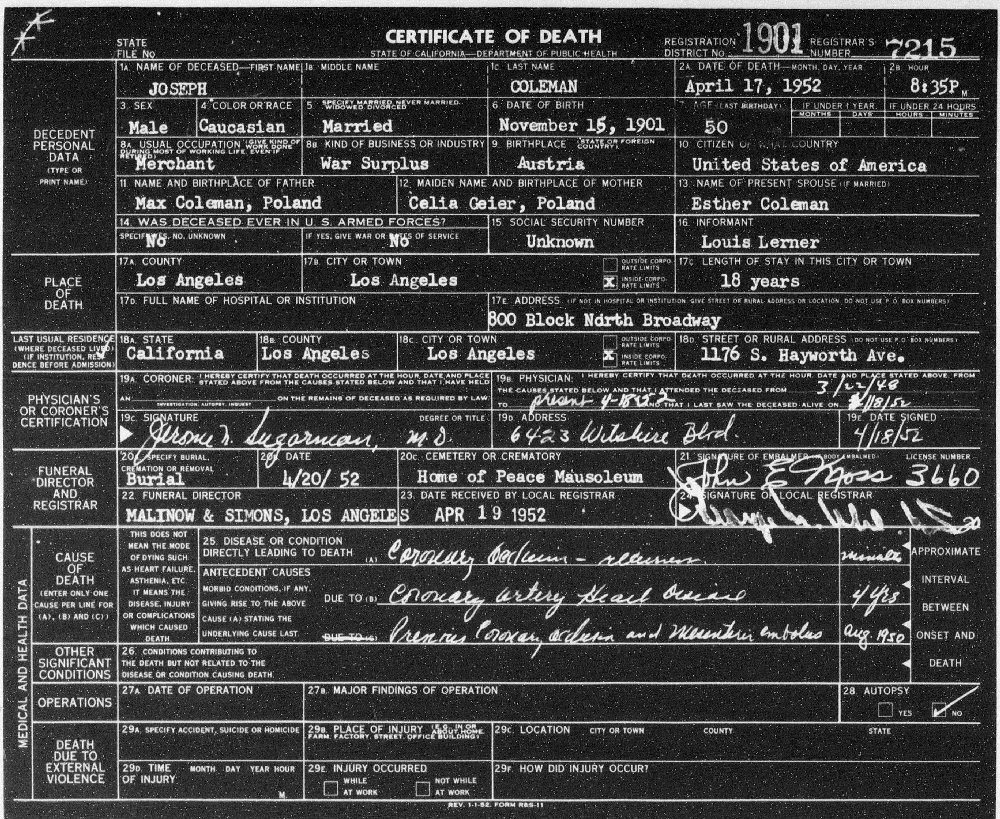 CERTIFICATE OF DEATH
STATE OF CALIFORNIA—DEPARTMENT OF PUBLIC HEALTH
STATE FILE No
REGISTRATION DISTRICT No. 1901
REGISTRAR'S NUMBER 7215
DECEDENT PERSONAL DATA (TYPE OR PRINT NAME)
1A. NAME OF DECEASED—FIRST NAME
JOSEPH
1B. MIDDLE NAME
1C. LAST NAME
COLEMAN
2A. DATE OF DEATH—MONTH, DAY, YEAR
April 17, 1952
2B. HOUR
8:35P M
3. SEX
Male
4. COLOR OR RACE
Caucasian
5. SPECIFY MARRIED, NEVER MARRIED, WIDOWED, DIVORCED
Married
6. DATE OF BIRTH
November 15, 1901
7. AGE (LAST BIRTHDAY)
50
IF UNDER 1 YEAR. MONTHS DAYS
IF UNDER 24 HOURS HOURS MINUTES
8A. USUAL OCCUPATION (GIVE KIND OF WORK DONE DURING MOST OF WORKING LIFE, EVEN IF RETIRED)
Merchant
8B. KIND OF BUSINESS OR INDUSTRY
War Surplus
9. BIRTHPLACE (STATE OR FOREIGN COUNTRY)
Austria
10. CITIZEN OF WHAT COUNTRY
United States of America
11. NAME AND BIRTHPLACE OF FATHER
Max Coleman, Poland
12. MAIDEN NAME AND BIRTHPLACE OF MOTHER
Celia Geier, Poland
13. NAME OF PRESENT SPOUSE (IF MARRIED)
Esther Coleman
14. WAS DECEASED EVER IN U. S. ARMED FORCES?
SPECIFY YES, NO, UNKNOWN
No
IF YES, GIVE WAR OR DATES OF SERVICE
No
15. SOCIAL SECURITY NUMBER
Unknown
16. INFORMANT
Louis Lerner
PLACE OF DEATH
17A. COUNTY
Los Angeles
17B. CITY OR TOWN
Los Angeles
OUTSIDE CORPO RATE LIMITS
X INSIDE CORPO RATE LIMITS
17C. LENGTH OF STAY IN THIS CITY OR TOWN
18 years
17D. FULL NAME OF HOSPITAL OR INSTITUTION
17E. ADDRESS (IF NOT IN HOSPITAL OR INSTITUTION, GIVE STREET OR RURAL ADDRESS OR LOCATION. DO NOT USE P. O. BOX NUMBERS)
800 Block North Broadway
LAST USUAL RESIDENCE (WHERE DECEASED LIVED) (IF INSTITUTION, RESIDENCE BEFORE ADMISSION)
18A. STATE
California
18B. COUNTY
Los Angeles
18C. CITY OR TOWN
Los Angeles
OUTSIDE CORPO RATE LIMITS
X INSIDE CORPO RATE LIMITS
18D. STREET OR RURAL ADDRESS (DO NOT USE P. O. BOX NUMBERS)
1176 S. Hayworth Ave.
PHYSICIAN'S OR CORONER'S CERTIFICATION
19A. CORONER: I HEREBY CERTIFY THAT DEATH OCCURRED AT THE HOUR, DATE AND PLACE STATED ABOVE FROM THE CAUSES STATED BELOW AND THAT I HAVE HELD
AN INVESTIGATION, AUTOPSY, INQUEST ON THE REMAINS OF DECEASED AS REQUIRED BY LAW.
19B. PHYSICIAN: I HEREBY CERTIFY THAT DEATH OCCURRED AT THE HOUR, DATE AND PLACE STATED ABOVE, FROM THE CAUSES STATED BELOW AND THAT I ATTENDED THE DECEASED FROM 3/22/48
TO present AND THAT I LAST SAW THE DECEASED ALIVE ON
19C. SIGNATURE
Jerome N. Sugarman,
DEGREE OR TITLE
M.D.
19D. ADDRESS
6423 Wilshire Blvd.
19E. DATE SIGNED
4/18/52
FUNERAL DIRECTOR AND REGISTRAR
20A. SPECIFY BURIAL, CREMATION OR REMOVAL
Burial
20B. DATE
4/20/52
20C. CEMETERY OR CREMATORY
Home of Peace Mausoleum
21. SIGNATURE OF EMBALMER (IF BODY EMBALMED)
John E Moss
LICENSE NUMBER
3660
22. FUNERAL DIRECTOR
MALINOW & SIMONS, LOS ANGELES
23. DATE RECEIVED BY LOCAL REGISTRAR
APR 19 1952
24. SIGNATURE OF LOCAL REGISTRAR
MEDICAL AND HEALTH DATA
CAUSE OF DEATH (ENTER ONLY ONE CAUSE PER LINE FOR (A), (B) AND (C))
THIS DOES NOT MEAN THE MODE OF DYING SUCH AS HEART FAILURE, ASTHENIA, ETC. IT MEANS THE DISEASE, INJURY OR COMPLICATIONS WHICH CAUSED DEATH.
25. DISEASE OR CONDITION DIRECTLY LEADING TO DEATH (A)
Coronary occlusion –
ANTECEDENT CAUSES
MORBID CONDITIONS, IF ANY, GIVING RISE TO THE ABOVE CAUSE (A) STATING THE UNDERLYING CAUSE LAST.
DUE TO (B)
Coronary artery Heart Disease
4 yrs
DUE TO (C)
Previous Coronary occlusion and Mesenteric embolus
Aug. 1950
APPROXIMATE INTERVAL BETWEEN ONSET AND DEATH
OTHER SIGNIFICANT CONDITIONS
26. CONDITIONS CONTRIBUTING TO THE DEATH BUT NOT RELATED TO THE DISEASE OR CONDITION CAUSING DEATH.
OPERATIONS
27A. DATE OF OPERATION
27B. MAJOR FINDINGS OF OPERATION
28. AUTOPSY
YES NO
DEATH DUE TO EXTERNAL VIOLENCE
29A. SPECIFY ACCIDENT, SUICIDE OR HOMICIDE
29B. PLACE OF INJURY (E.G., IN OR ABOUT HOME, FARM, FACTORY, STREET, OFFICE BUILDING)
29C. LOCATION CITY OR TOWN COUNTY STATE
29D. TIME OF INJURY MONTH DAY YEAR HOUR M
29E. INJURY OCCURRED
WHILE AT WORK
NOT WHILE AT WORK
29F. HOW DID INJURY OCCUR?
REV. 1-1-52. FORM R&S-11